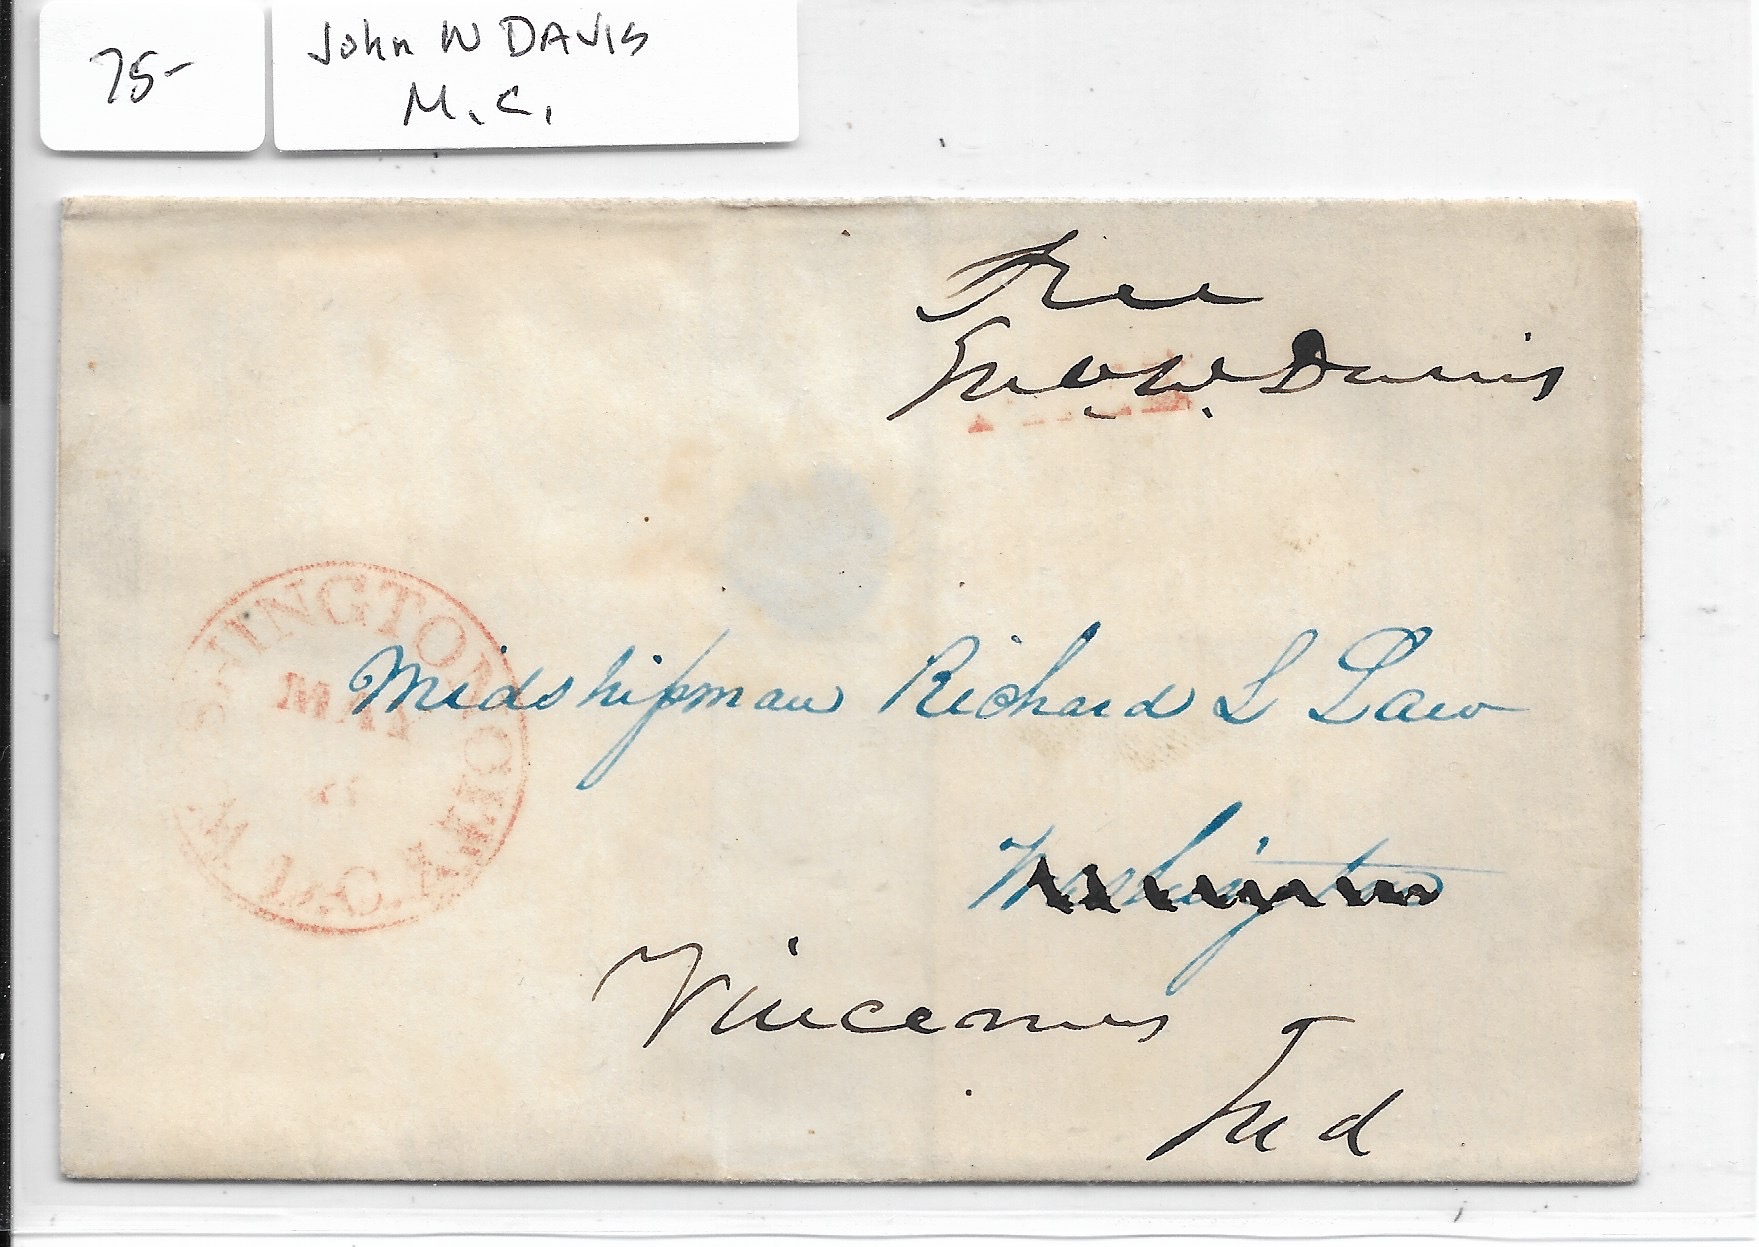 75-
John W DAVIS
M.C.
Free
Jno. W. Davis
WASHINGTON CITY D.C.
MAY
Midshipman Richard L Law
Washington
Vincennes
Ind